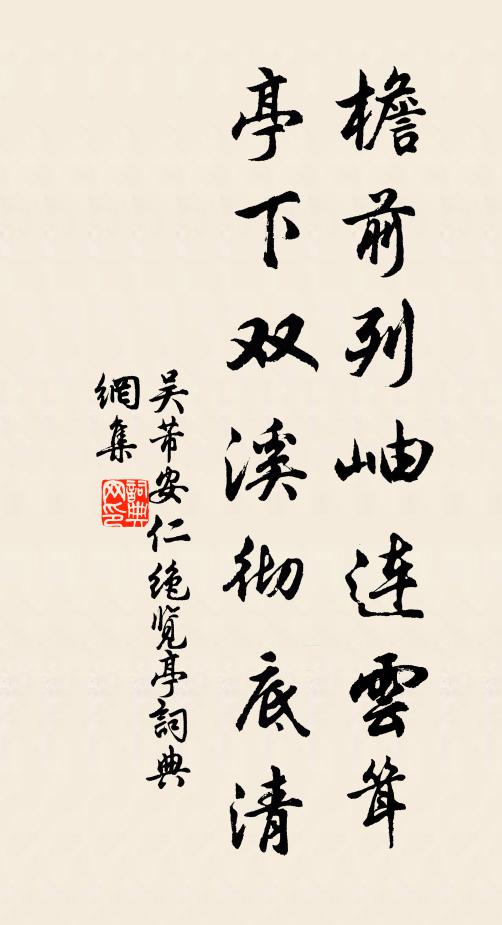 檐前列岫连雲耸
亭下双溪彻底清
吴芾安仁绝览亭詞典
網集
詞典网印